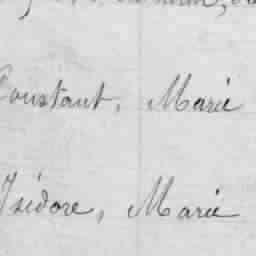 Constant, Marie
Isidore, Marie